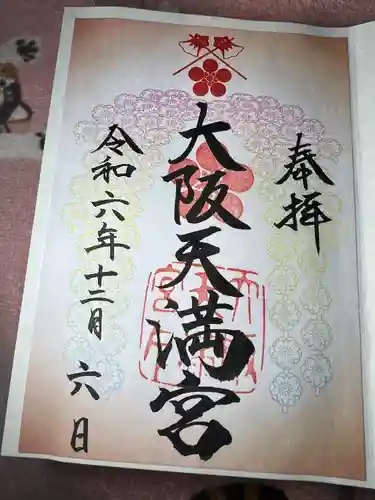 奉拝
大阪天満宮
令和六年十二月六日